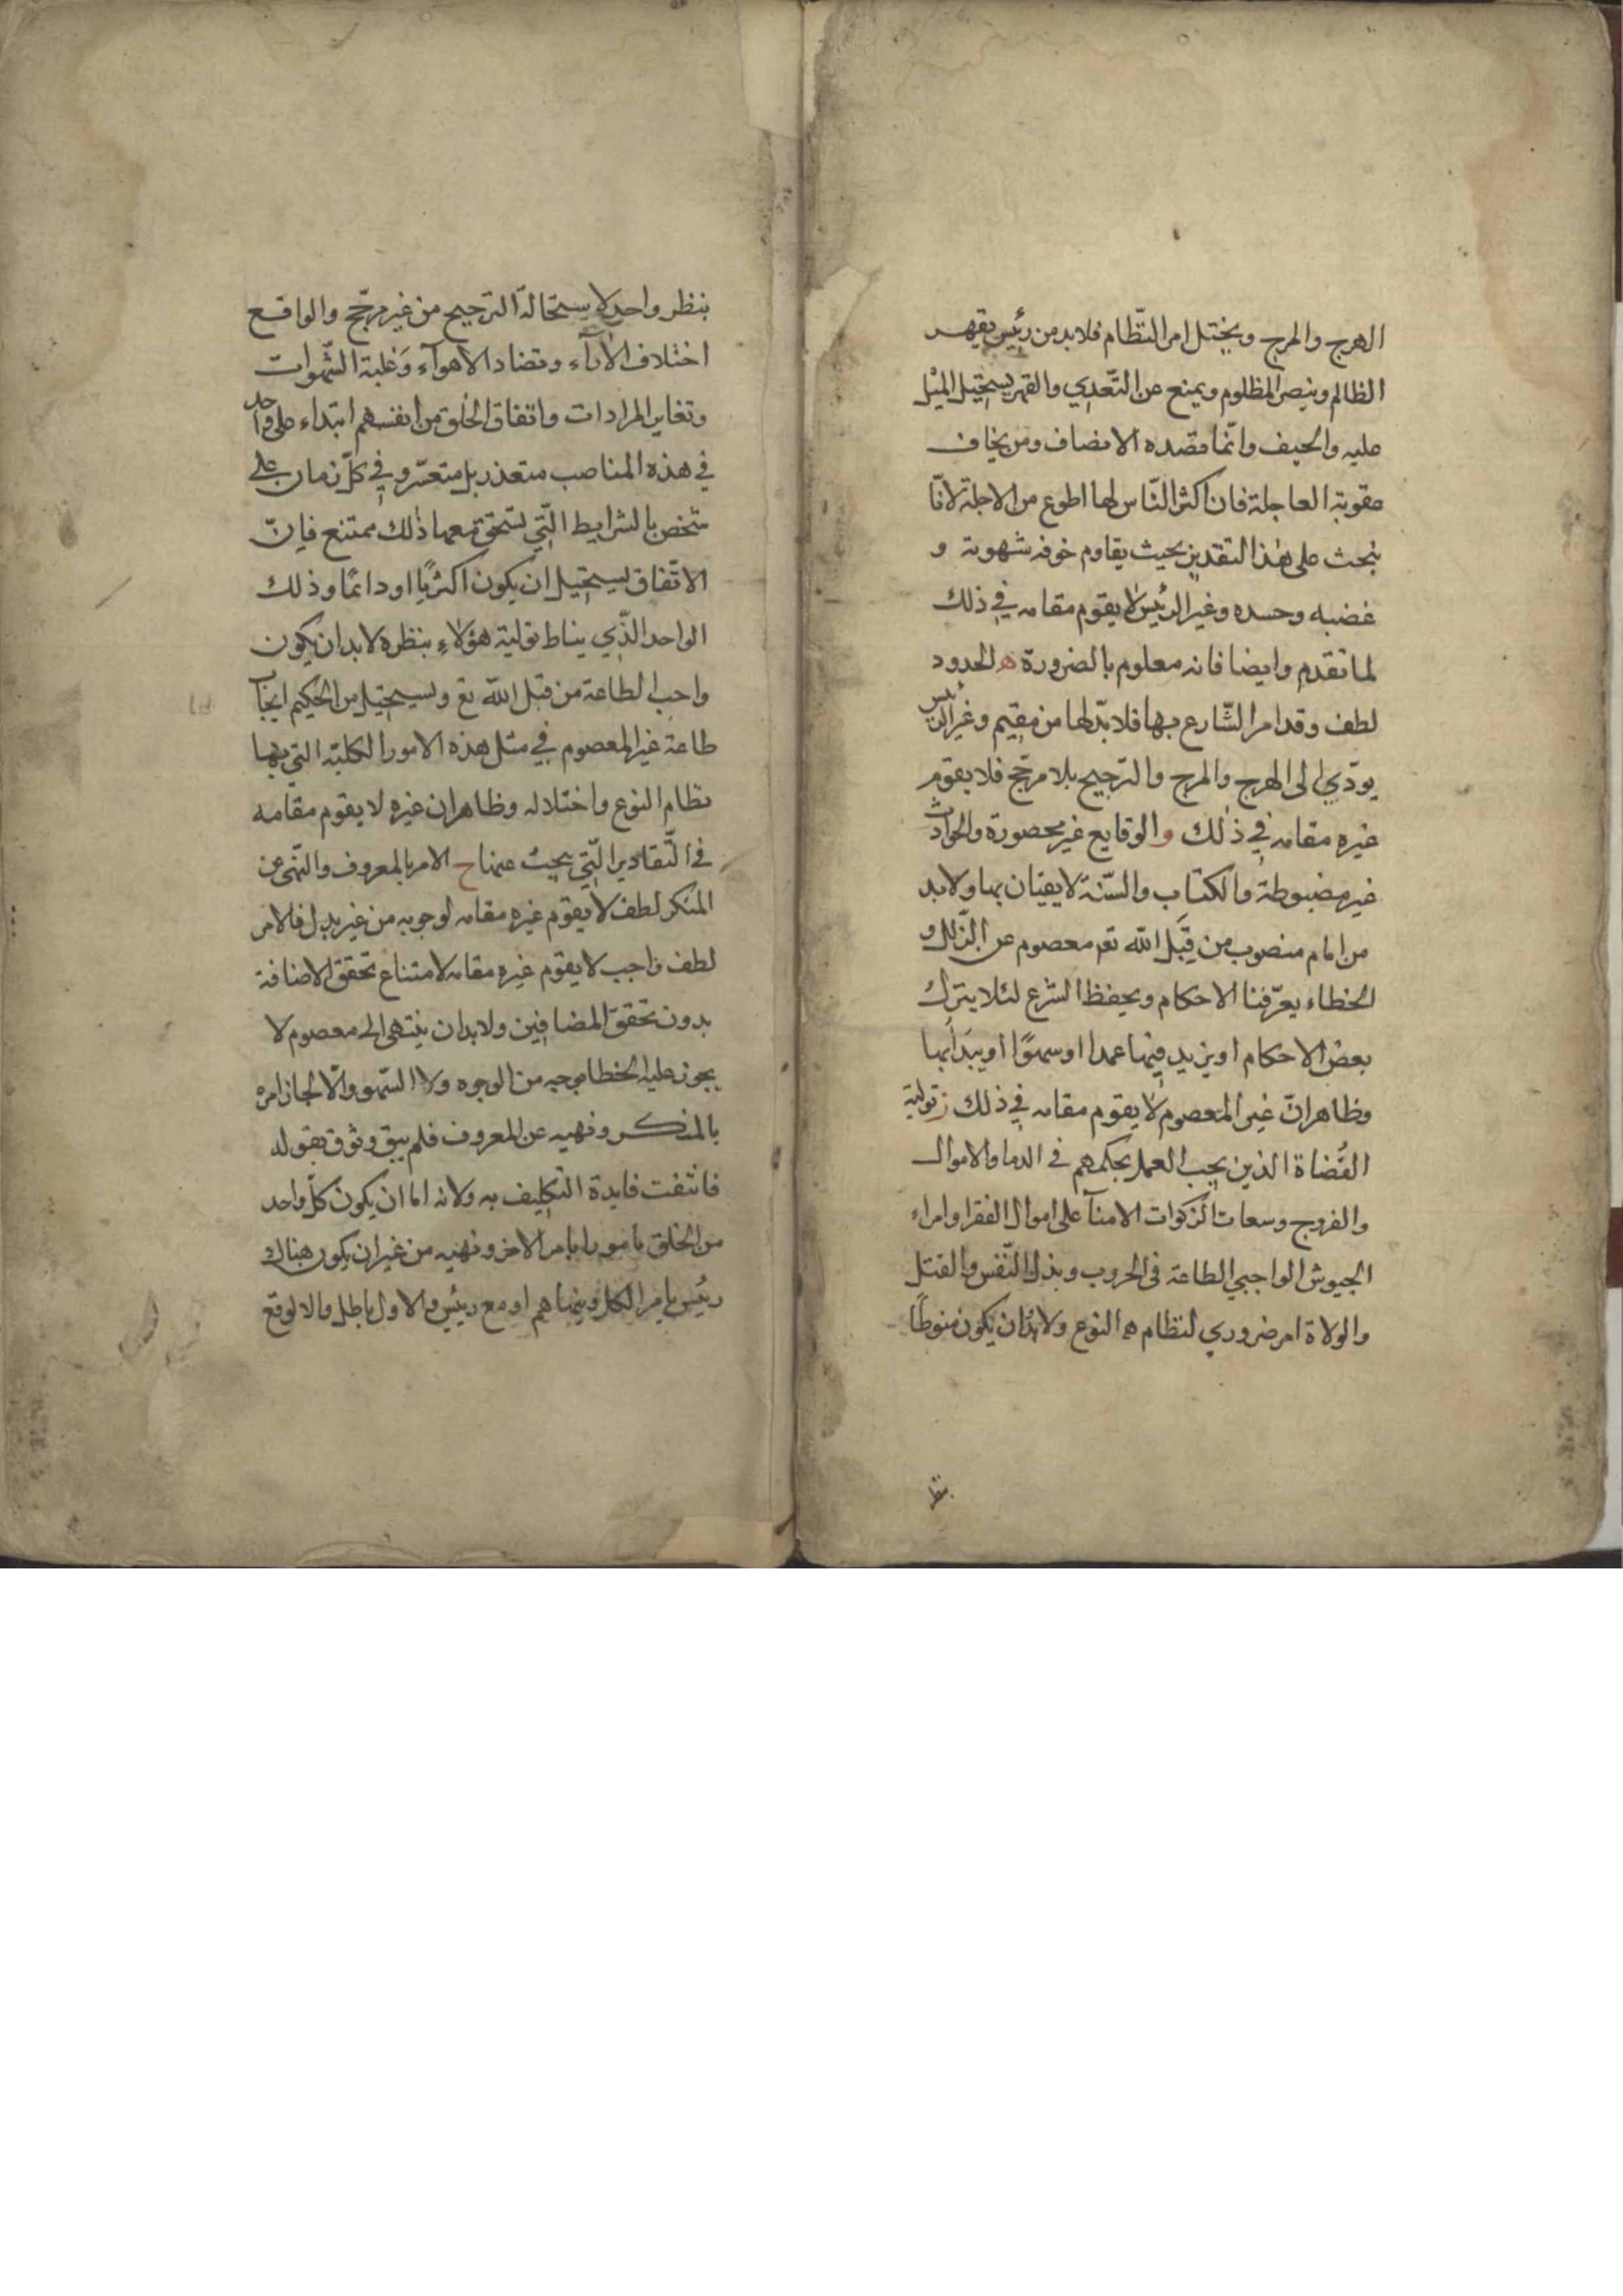 الهرج والمرج ويختل امر النّظام فلا بد من رئيس يقهر
الظالم وينصر المظلوم ويمنع عن التّعدي والقهر يستحيل الميْل
عليه والحيف وانّما قصده الانصاف ومن يخاف
عقوبته العاجلة فان اكثر النّاس لها اطوع من الاجلة لانّا
نبحث على هٰذا التقدير بحيث يقاوم خوفه شهوته و
غضبه وحسده وغير الرئيس لا يقوم مقامه في ذلك
لما تقدم وايضا فانه معلوم بالضرورة ه الحدود
لطف وقد امر الشّارع بها فلا بدّ لها من مقيم وغير الرئيس
يودّي الى الهرج والمرج والترجيح بلا مرجّح فلا يقوم
غيره مقامه في ذٰلك و الوقايع غير محصورة والحوادث
غير مضبوطة والكتاب والسّنة لا يفيان بها ولا بد
من امام منصوب من قِبَل الله تع معصوم عن الزّلل و
الخطاء يعرّفنا الاحكام ويحفظ الشرع لئلا يترك
بعض الاحكام او يزيد فيها عمدا او سهوًا او يبدلها
وظاهر انّ غير المعصوم لا يقوم مقامه في ذلك ز تولية
القُضاة الذين يجب العمل بحكمهم في الدما والاموال
والفروج وسعات الزكوات الامنآ على اموال الفقرا وامراء
الجيوش الواجبي الطاعة في الحروب وبذل النّفس والقتل
والولاة امر ضروري لنظام ه النوع ولا بد ان يكون منوطًا
بنظر
بنظر واحد لاستحالة الترجيح من غير مرجّح والواقع
اختلاف الأرآء وتضاد الاهوآء وَغلبة الشّهوات
وتغاير المرادات واتفاق الخلق من انفسهم ابتداء على واحد
في هذه المناصب متعذر بل متعسّر وفي كلّ زمان على
شخص بالشرايط الّتي يستحق معها ذٰلك ممتنع فاِنّ
الاتّفاق يستحيل ان يكون اكثريًا او دائمًا وذلك
الواحد الذّي يناط تولية هؤلاء بنظره لا بد ان يكون
واجب الطاعة من قبل الله تع ويستحيل من الحكيم ايجاب
طاعة غير المعصوم في مثل هذه الامور الكليّه التي بها
نظام النوع واختلاله وظاهر ان غيره لا يقوم مقامه
في التّقادير الّتي يبحث عنها ح الامر بالمعروف والنّهى عن
المنكر لطف لا يقوم غيره مقامه لوجوبه من غير بدل فالامر
لطف واجب لا يقوم غيره مقامه لامتناع تحقق الاضافة
بدون تحقق المضافين ولا بد ان ينتهى الى معصوم لا
يجوز عليه الخطا بوجه من الوجوه ولا السّهو والّا لجاز امره
بالمنكر ونهيه عن المعروف فلم يبق وثوق بقوله
فانتفت فايدة التكليف به ولانه اما ان يكون كلّ واحد
من الخلق مامورا بامر الاخر ونهيه من غير ان يكون هناك
رئيس يامر الكل وينهاهم او مع رئيس والاول باطل والا لوقع